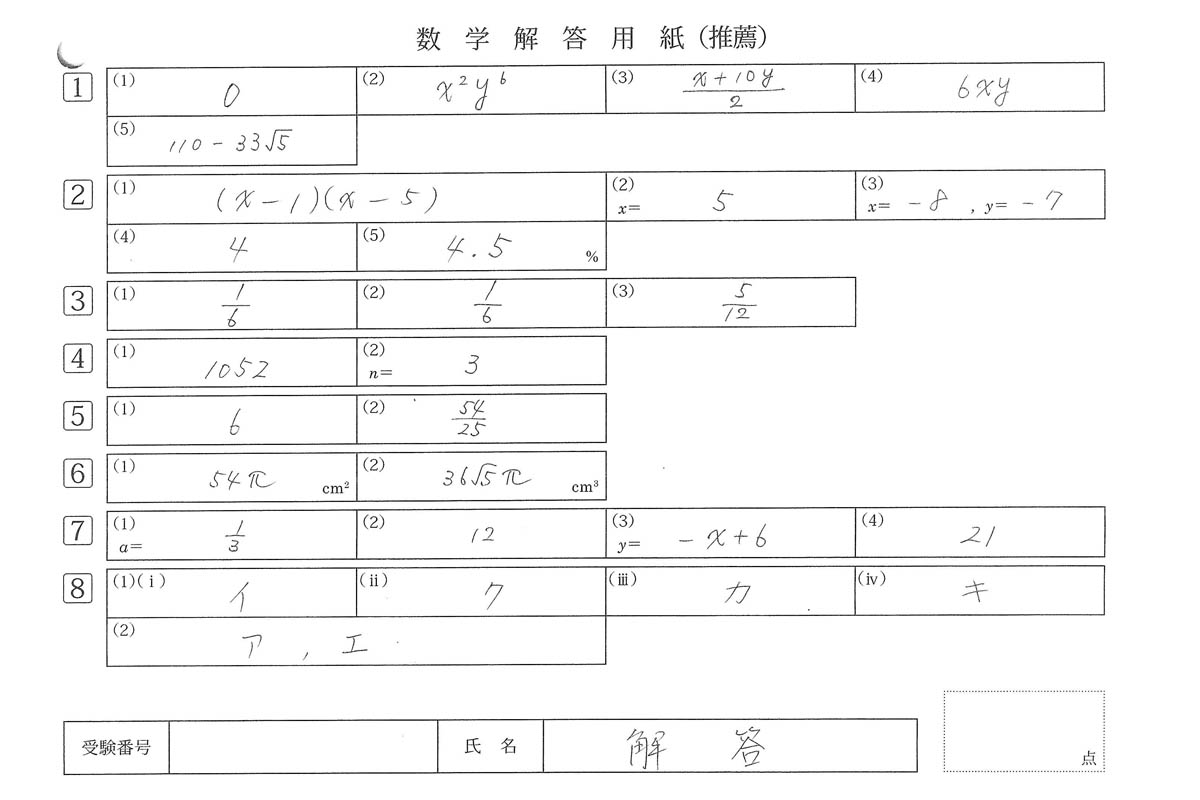 数学解答用紙(推薦)
1 (1) 0 (2) x²y⁶ (3) (x+10y)/2 (4) 6xy
(5) 110-33√5
2 (1) (x-1)(x-5) (2) x= 5 (3) x= -8 , y= -7
(4) 4 (5) 4.5 %
3 (1) 1/6 (2) 1/6 (3) 5/12
4 (1) 1052 (2) n= 3
5 (1) 6 (2) 54/25
6 (1) 54π cm² (2) 36√5π cm³
7 (1) a= 1/3 (2) 12 (3) y= -x+6 (4) 21
8 (1)(ⅰ) イ (ⅱ) ウ (ⅲ) カ (ⅳ) キ
(2) ア , エ
受験番号 氏名 解答 点